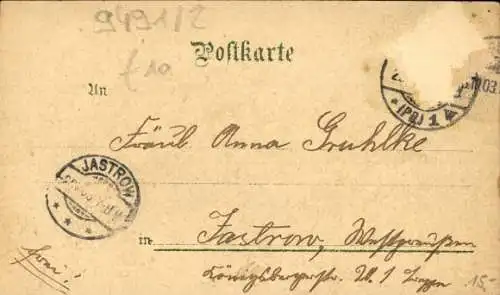 9491/2
Postkarte
f 10
An
Fräul. Anna Gruhlke
JASTROW
(PB) 1
03
in Jastrow, Westpreußen
Königsbergerstr.
frei!
15